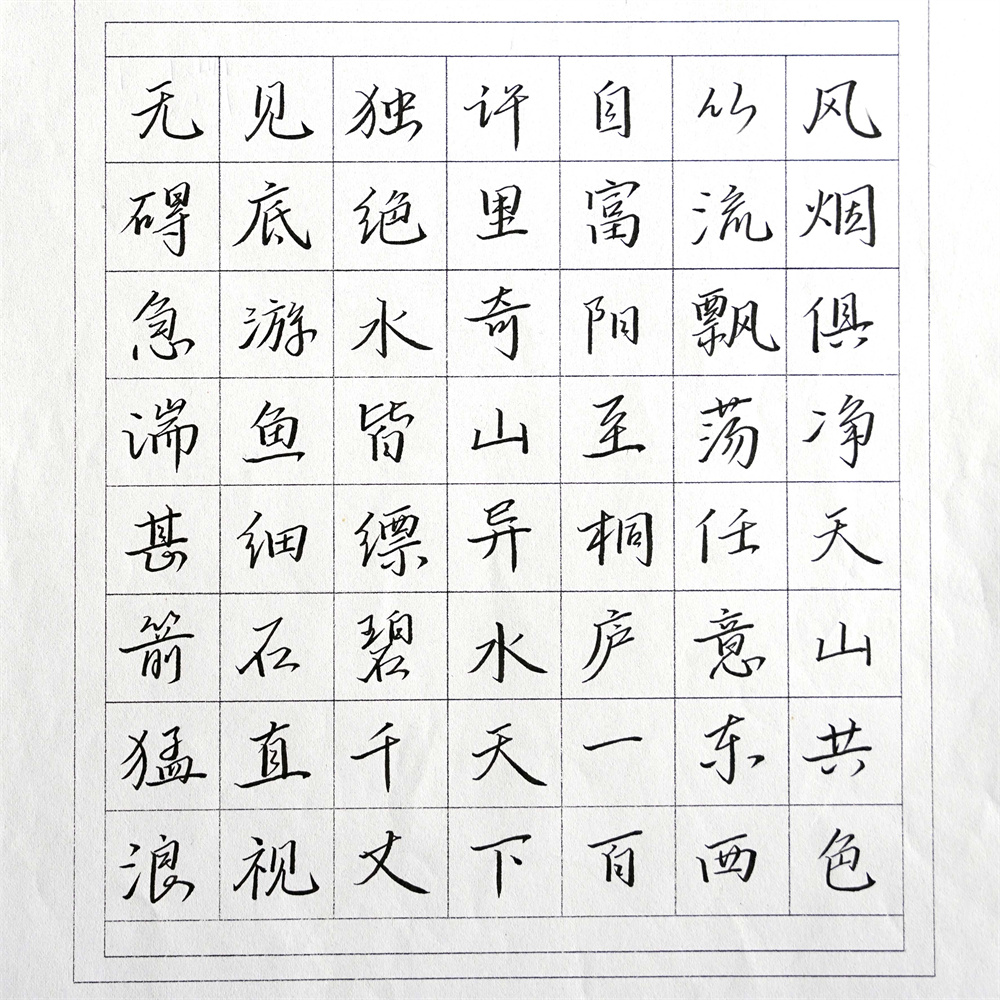 风烟俱净天山共色
从流飘荡任意东西
自富阳至桐庐一百
许里奇山异水天下
独绝水皆缥碧千丈
见底游鱼细石直视
无碍急湍甚箭猛浪